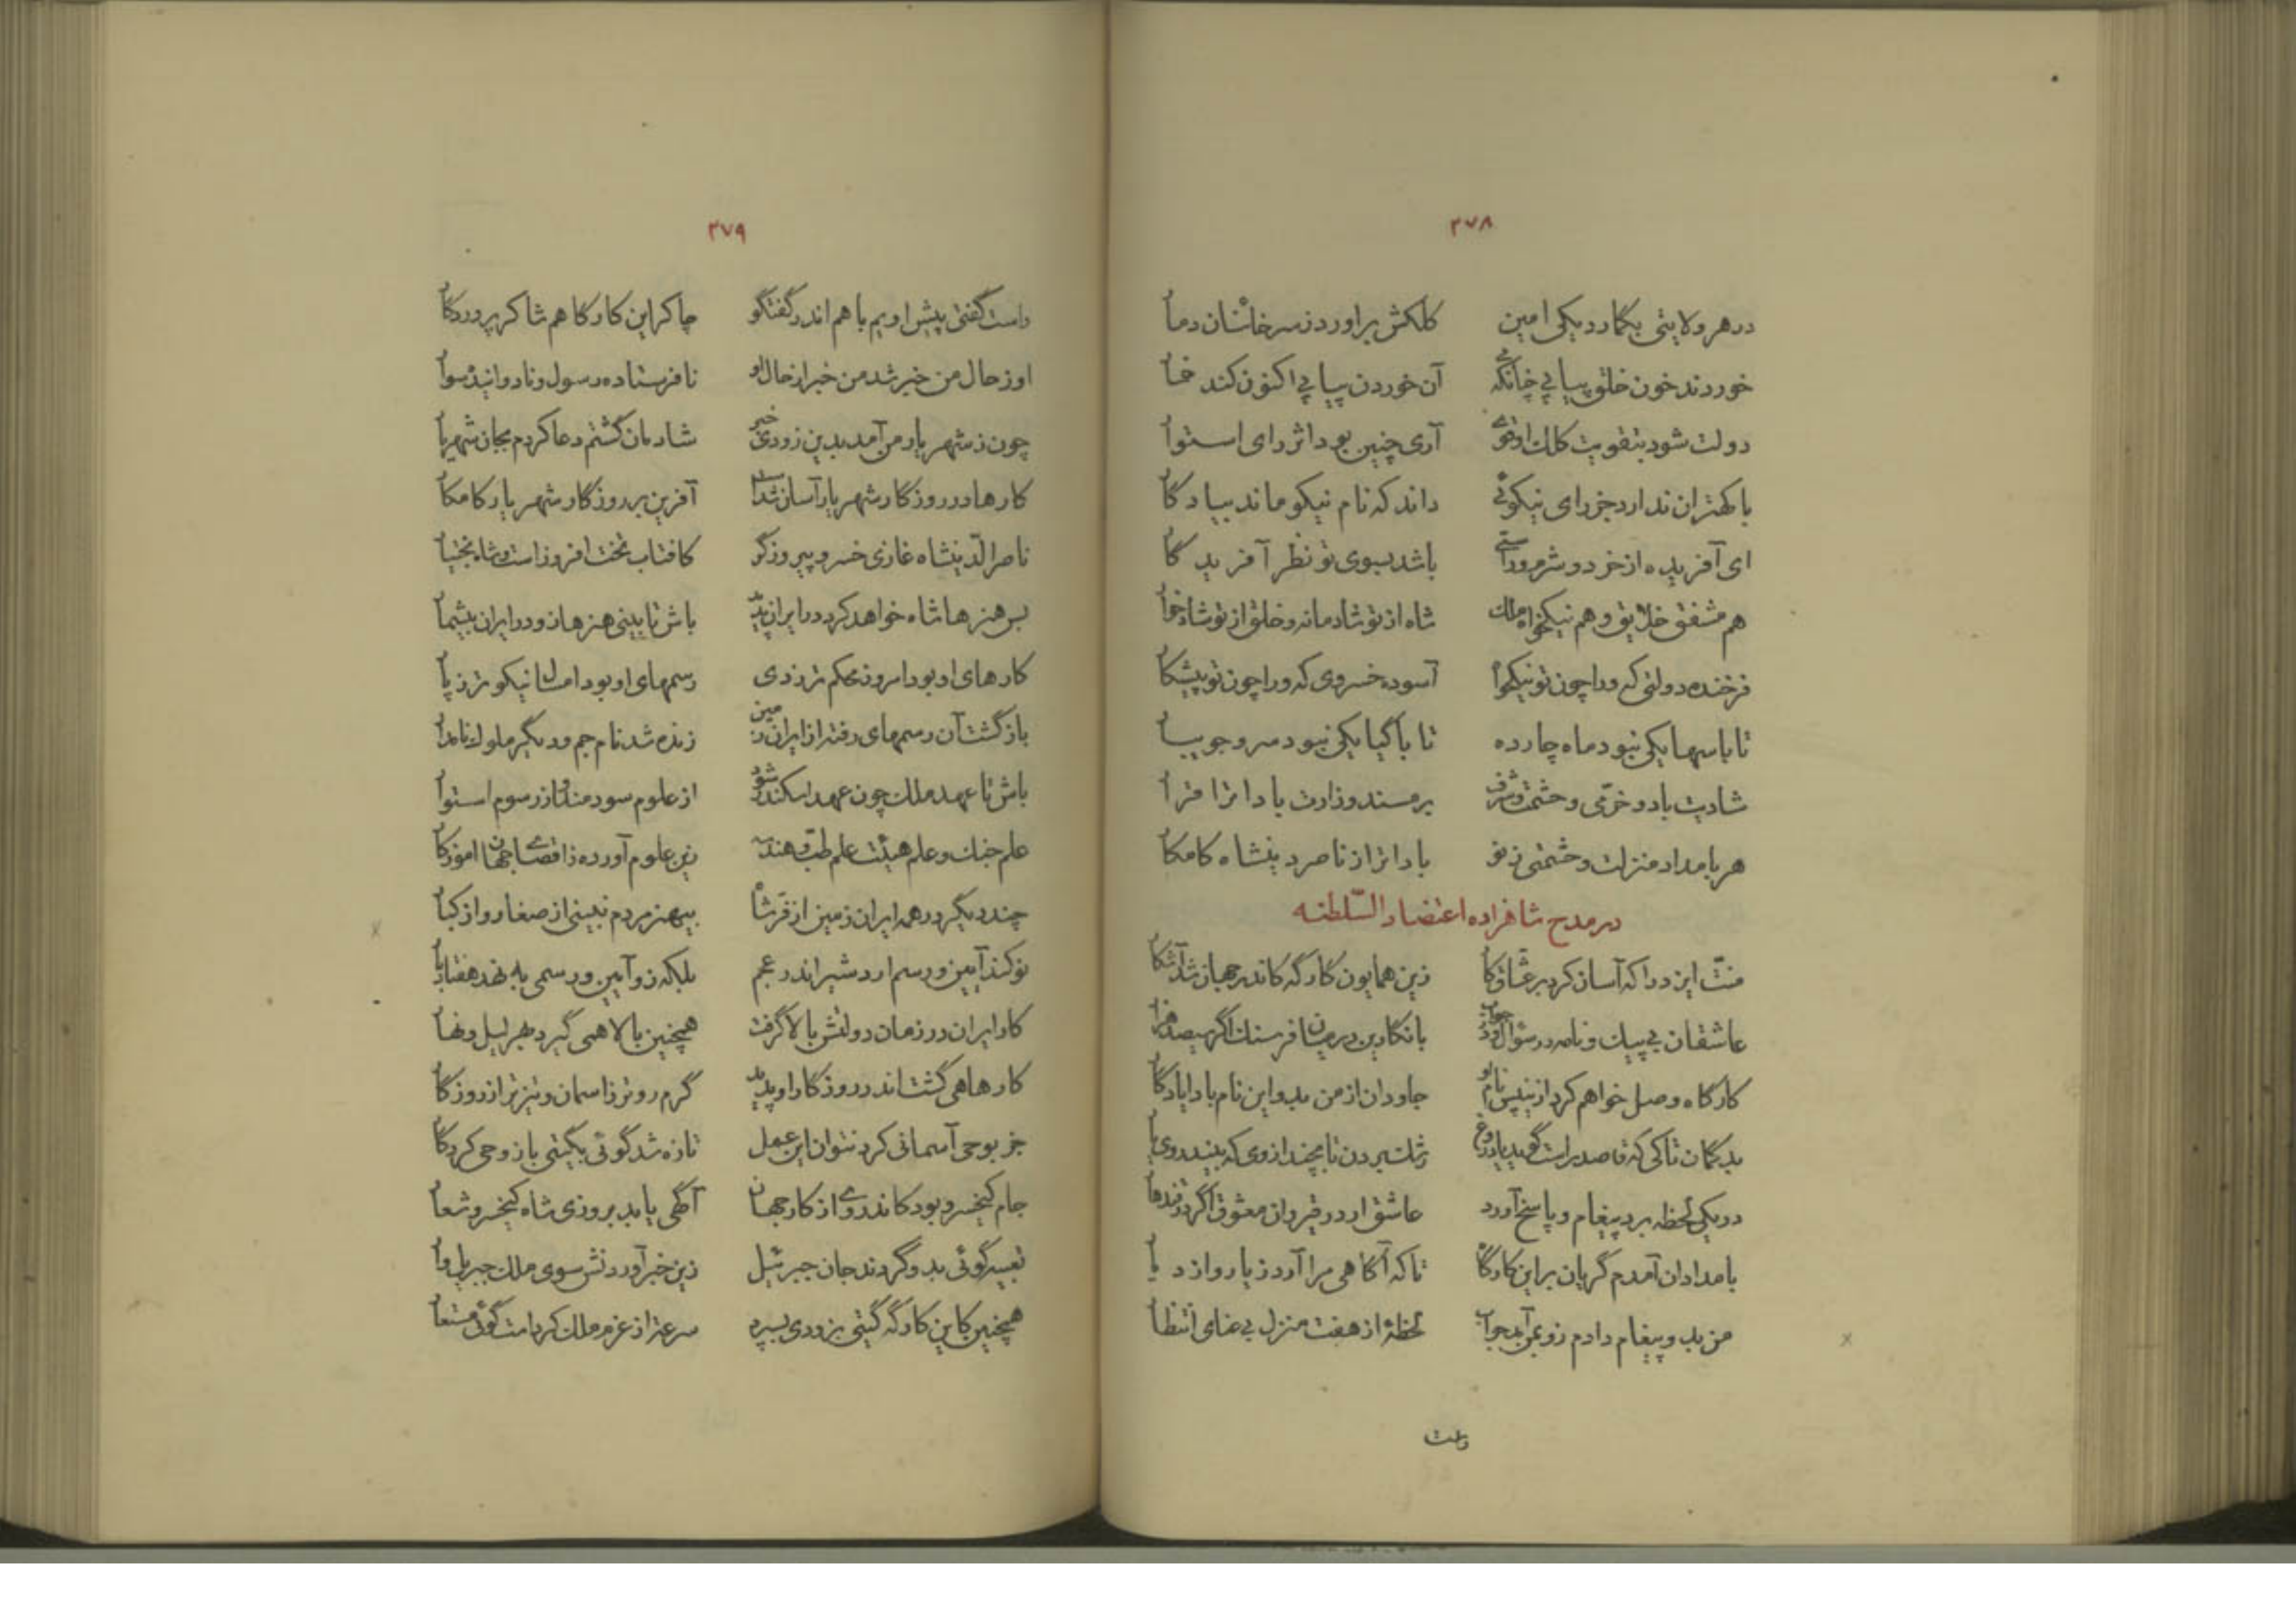 ۳۷۸
در هر ولایتی بگمارد یکی امین کلکش برآورد ز سر خائنان دمار
خوردند خون خلق پیاپی چنانکه می آن خوردن پیاپی اکنون کند خمار
دولت شود بتقویت کلک او قوی آری چنین بود اثر رای استوار
با کهتران ندارد جز رای نیکوئی داند که نام نیکو ماند بیادگار
ای آفریده از خرد و شرم و راستی باشد بسوی تو نظر آفریدگار
هم مشفق خلایق و هم نیکخواه ملک شاه از تو شادمانه و خلق از تو شادخوار
فرخنده دولتی که ورا چون تو نیکخواه آسوده خسروی که ورا چون تو پیشکار
تا با سها یکی نبود ماه چارده تا با گیا یکی نبود سرو جویبار
شادیت باد و خرّمی و حشمت و شرف بر مسند وزارت بادا ترا قرار
هر بامداد منزلت و حشمتی ز نو بادا ترا ز ناصر دین شاه کامکار
در مدح شاهزاده اعتضاد السّلطنه
منّت ایزد را که آسان کرد بر عشّاق کار زین همایون کارگه کاندر جهان شد آشکار
عاشقان بی پیک و نامه در سؤال و در جواب با نگارین در میان فرسنگ اگر سیصد هزار
کارگاه وصل خواهم کرد ازین پس نام او جاودان از من بدو این نام بادا یادگار
بدگمان تا کی که قاصد راست گوید یا دروغ رشک بردن تا بچند از وی که بیند روی یار
در یکی لحظه برد پیغام و پاسخ آورد عاشق ار در قیروان معشوق اگر در قندهار
بامدادان آمدم گریان بر این کارگاه تا که آگاهی مرا آرد ز یار و از دیار
من بدو پیغام دادم زو بمن آمد جواب لحظهٔ از هفت منزل بی عنای انتظار
راست
۳۷۹
راست گفتی پیش اویم با هم اندر گفتگو چاکر این کارگاهم شاکر پروردگار
او ز حال من خبر شد من خبر از حال او نافرستاده رسول و نادوانیده سوار
چون ز شهر یار من آمد بدین زودی خبر شادمان گشتم دعا کردم بجان شهریار
کارها در روزگار شهریار آسان شداست آفرین بر روزگار شهریار کامکار
ناصر الدّینشاه غازی خسرو پیروزگر کافتاب تخت افروز است و شاه بختیار
بس هنرها شاه خواهد کرد در ایران پدید باش تا بینی هنرها زو در ایران بیشمار
کارهای او بود امروز محکم تر ز دی رسمهای او بود امسال نیکوتر ز پار
بازگشت آن رسمهای رفته از ایران زمین زنده شد نام جم و دیگر ملوک نامدار
باش تا عهد ملک چون عهد اسکندر شود از علوم سودمند و از رسوم استوار
علم جنگ و علم هیئت علم طبّ و هندسه زین علوم آورده ز اقصای جهان آموزگار
چند دیگر در همه ایران زمین از فرّ شاه بیهنر مردم نبینی از صغار و از کبار
نو کند آیین و رسم اردشیر اندر عجم بلکه زو آیین و رسمی به نهد هفتاد بار
کار ایران در زمان دولتش بالا گرفت همچنین بالا همی گیرد بهر لیل و نهار
کارها هی گشت اندر روزگار او پدید گرم روتر ز آسمان و تیزتر از روزگار
جز بوحی آسمانی کرد نتوان این عمل تازه شد گوئی بگیتی باز وحی کردگار
جام کیخسرو بود کاندر وی از کار جهان آگهی یابد بروزی شاه کیخسرو شعار
تعبیه گوئی بدو گردند جان جبرئیل زین خبر آوردنش سوی ملک جبریل وار
همچنین کاین کارگه گیتی بزودی بسپرد سرعت از عزم ملک کرده است گوئی مستعار